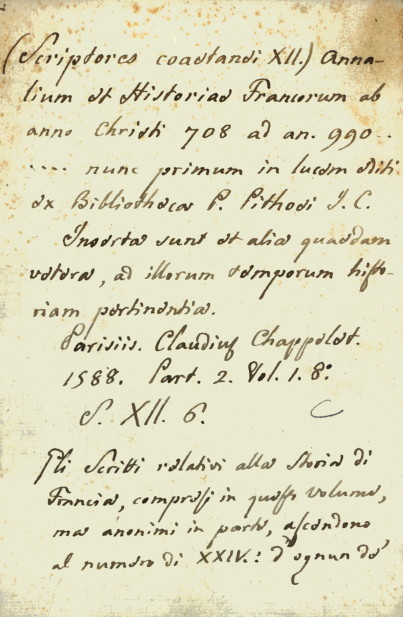 (Scriptores coaetanei XII.) Anna-
lium et Historiae Francorum ab
anno Christi 708 ad an. 990..
.... nunc primum in lucem editi
ex Bibliotheca P. Pithoei J. C.
Inserta sunt et alia quaedam
vetera, ad illorum temporum histo-
riam pertinentia.
Parisiis. Claudius Chappelet.
1588. Part. 2. Vol. 1. 8°.
S. XII. 6.
Gli Scritti relativi alla Storia di
Francia, compresi in questo volume,
ma anonimi in parte, ascendono
al numero di XXIV.: d'ognun de'